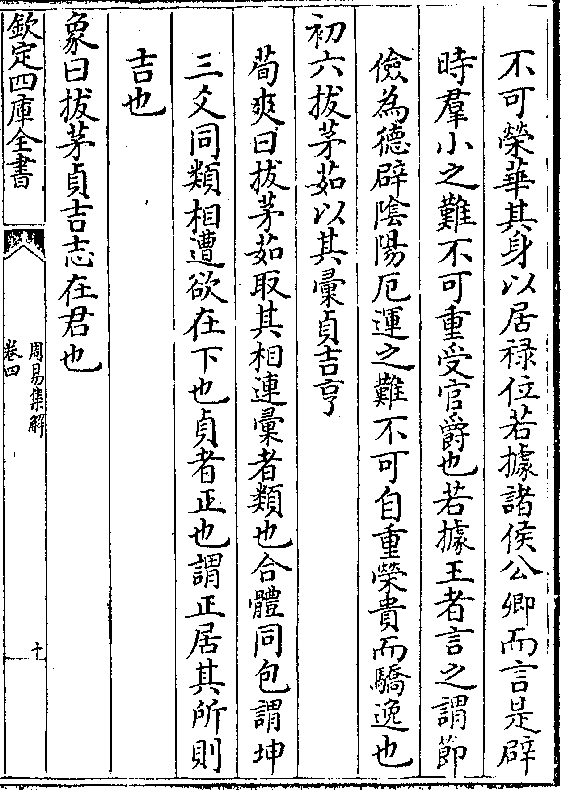 不可榮華其身以居祿位若據諸侯公卿而言是辟
時羣小之難不可重受官爵也若據王者言之謂節
儉為德辟陰陽厄運之難不可自重榮貴而驕逸也
初六拔茅茹以其彙貞吉亨
荀爽曰拔茅茹取其相連彙者類也合體同包謂坤
三爻同類相遭欲在下也貞者正也謂正居其所則
吉也
象曰拔茅貞吉志在君也
欽定四庫全書
周易集解
卷四
十